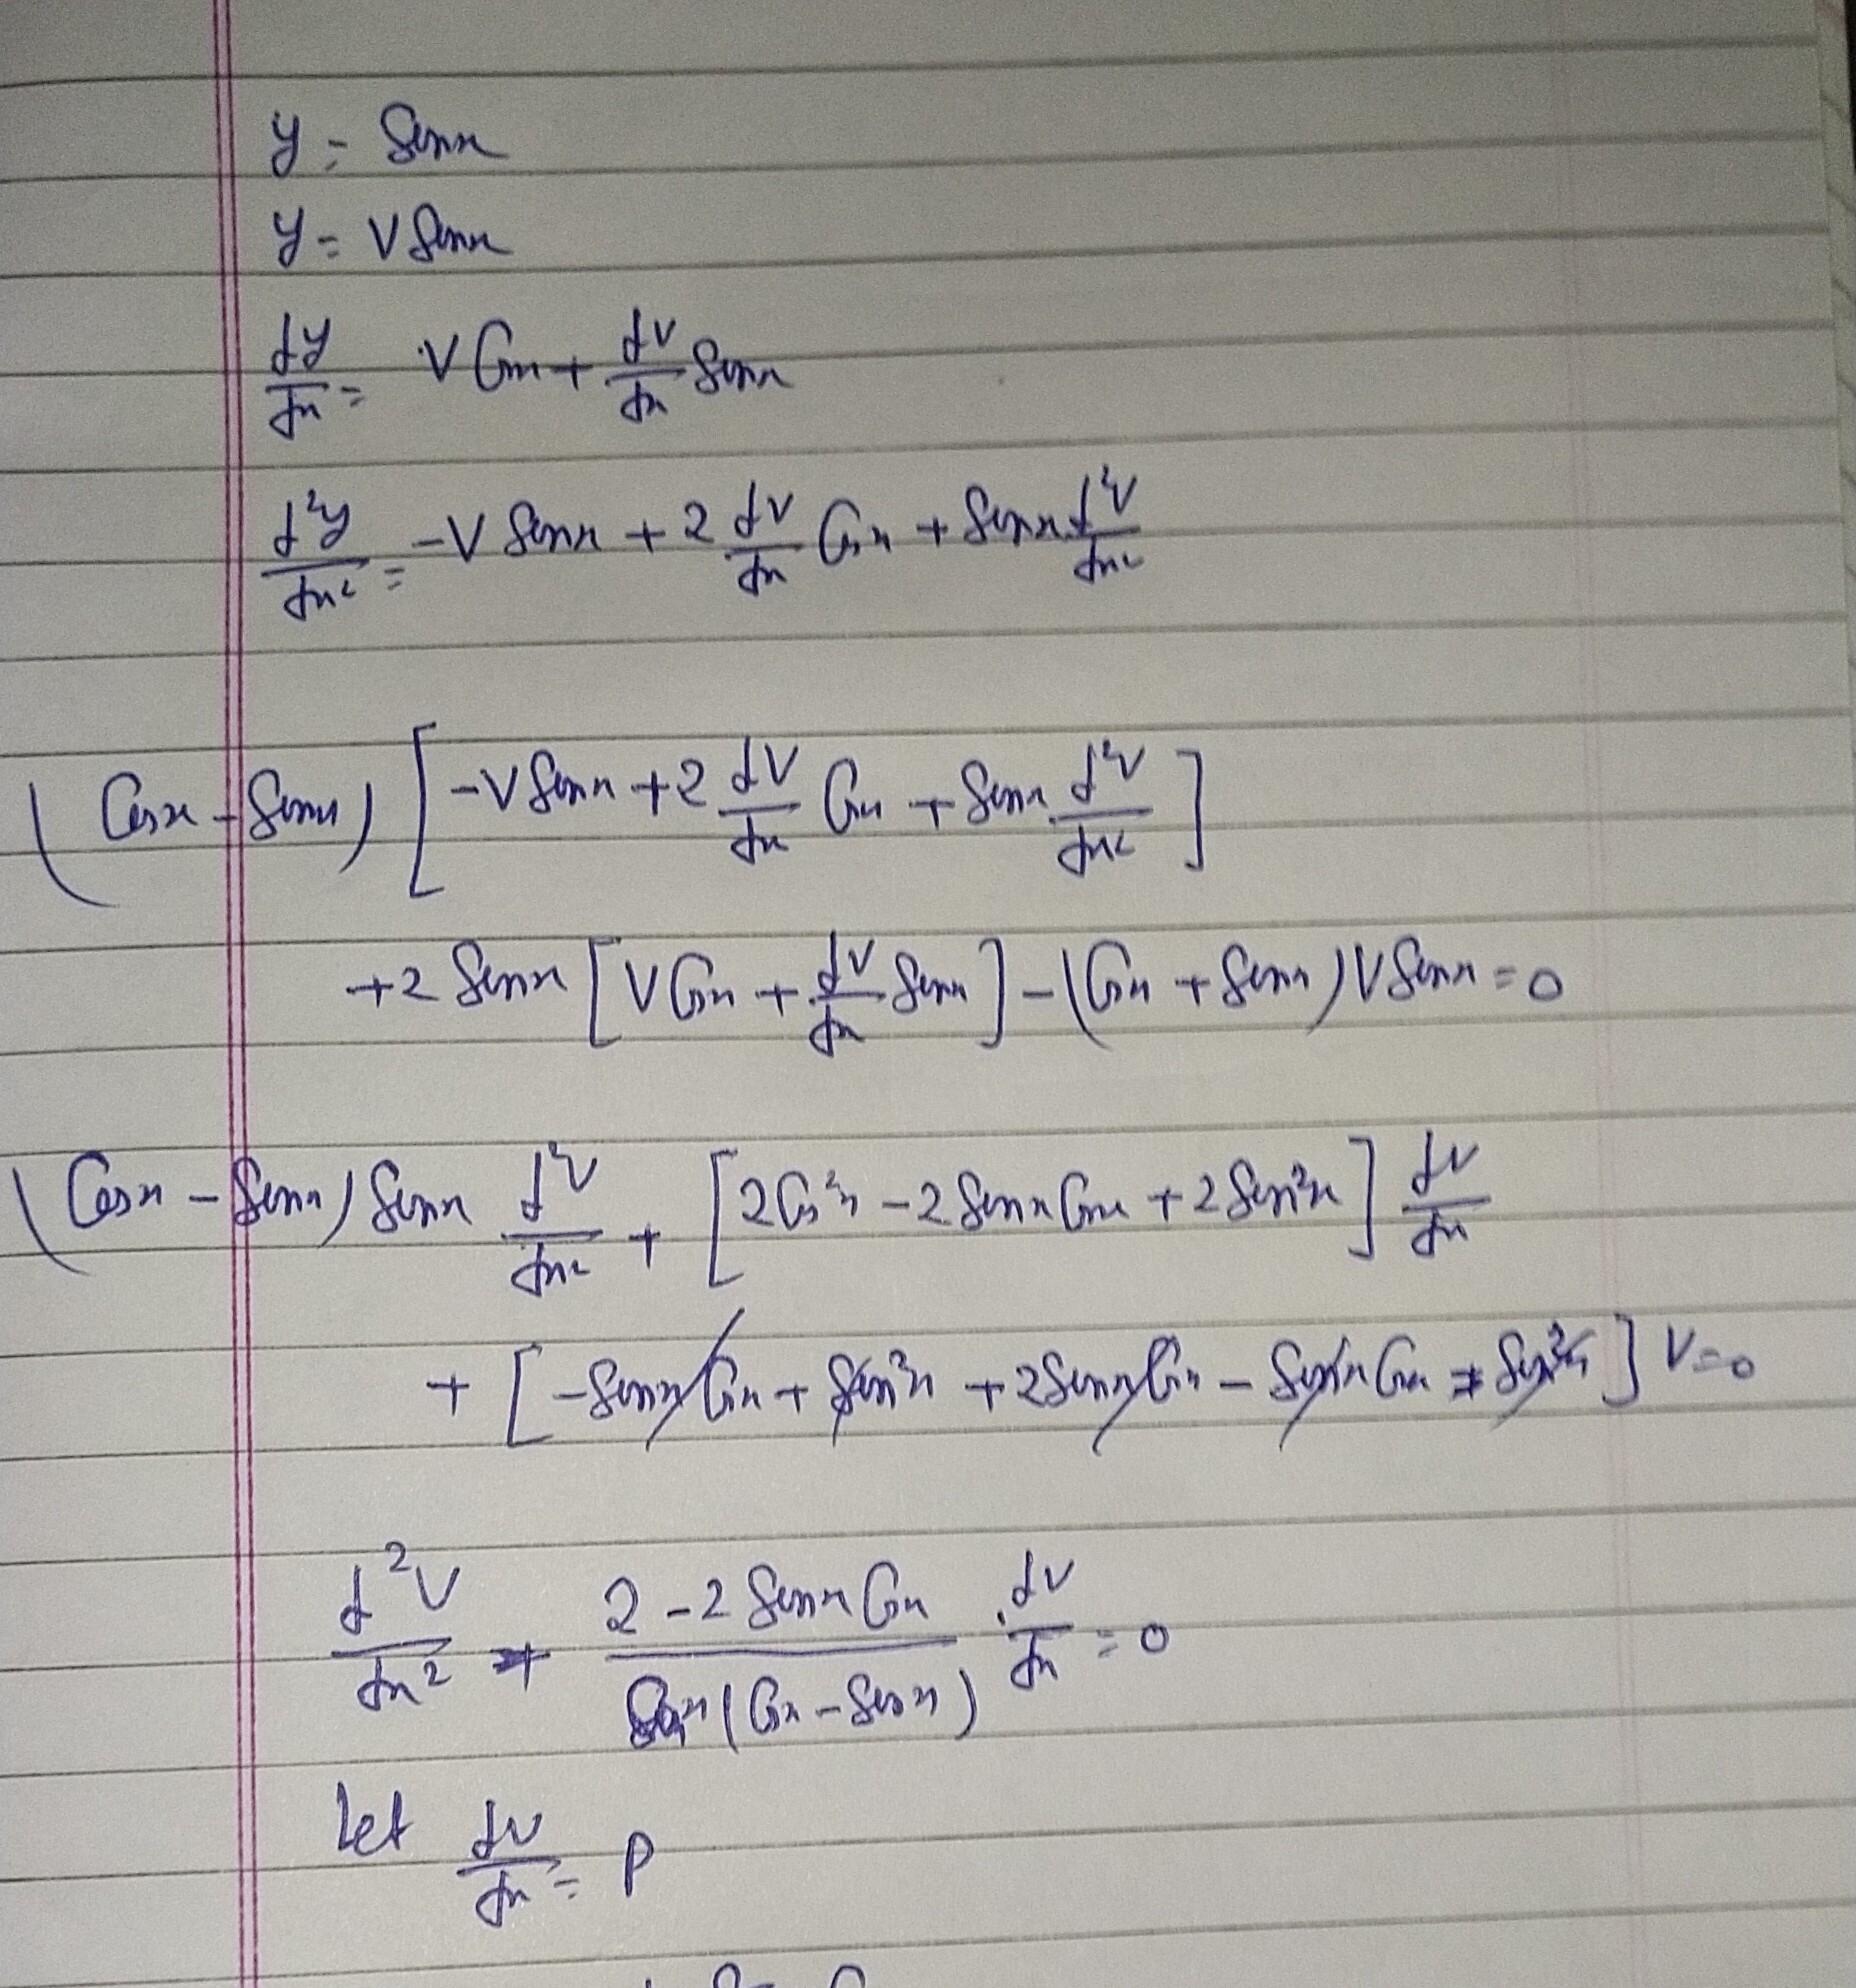 y = Sinx
y = V Sinx
dy/dx = V Cosx + dV/dx Sinx
d²y/dx² = -V Sinx + 2 dV/dx Cosx + Sinx d²V/dx²
(Cosx - Sinx) [-V Sinx + 2 dV/dx Cosx + Sinx d²V/dx²]
+2 Sinx [V Cosx + dV/dx Sinx] - (Cosx + Sinx) V Sinx = 0
(Cosx - Sinx) Sinx d²V/dx² + [2Cos²x - 2 Sinx Cosx + 2 Sin²x] dV/dx
+ [-Sinx Cosx + Sin²x + 2Sinx Cosx - Sinx Cosx - Sin²x] V = 0
d²V/dx² + 2 - 2 Sinx Cosx / Sinx (Cosx - Sinx) . dV/dx = 0
Let dV/dx = P